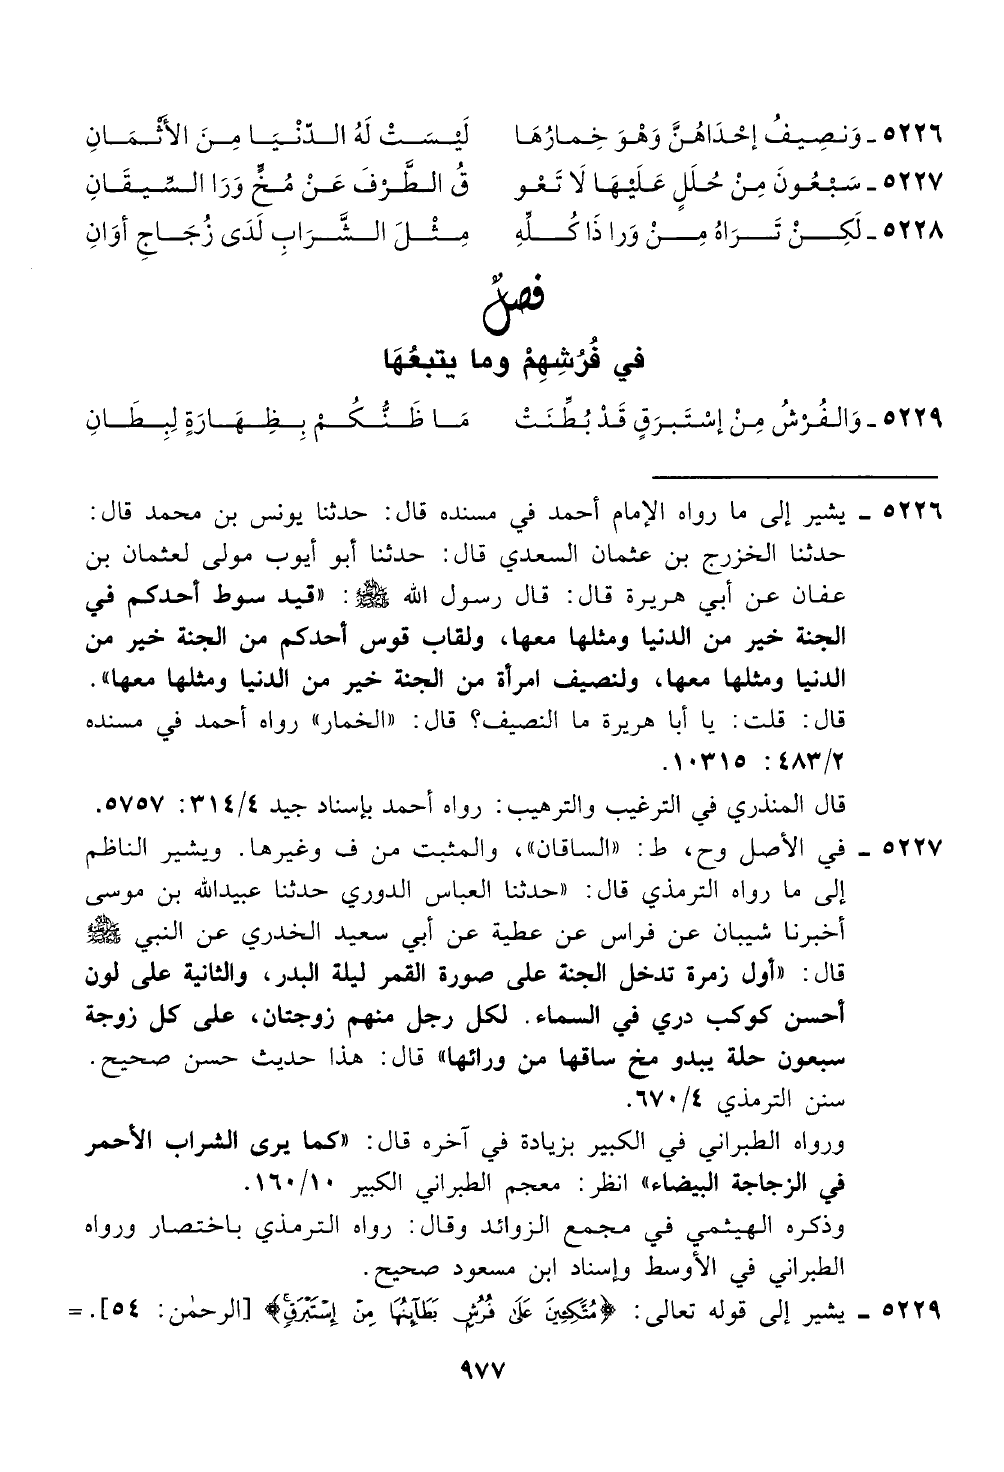 ٥٢٢٦ ـ وَنَصِيفُ إِحْدَاهُنَّ وَهْوَ خِمارُهَا لَيْسَتْ لَهُ الدّنْيَا مِنَ الأَثْمَانِ
٥٢٢٧ ـ سَبْعُونَ مِنْ حُلَلٍ عَلَيْهَا لَا تَعُو قُ الطَّرْفَ عَنْ مُخٍّ وَرَا السِّيقَانِ
٥٢٢٨ ـ لَكِنْ تَرَاهُ مِنْ وَرا ذَا كُلِّهِ مِثْلَ الشَّرَابِ لَدَى زُجَاجِ أوَانِ
فصلٌ
في فُرُشِهِمْ وما يتبعُهَا
٥٢٢٩ ـ وَالفُرْشُ مِنْ إسْتَبرَقٍ قَدْ بُطِّنَتْ مَا ظَنُّكُمْ بِظِهَارَةٍ لِبِطَانِ
٥٢٢٦ ـ يشير إلى ما رواه الإمام أحمد في مسنده قال: حدثنا يونس بن محمد قال:
حدثنا الخزرج بن عثمان السعدي قال: حدثنا أبو أيوب مولى لعثمان بن
عفان عن أبي هريرة قال: قال رسول الله ﷺ: «قيد سوط أحدكم في
الجنة خير من الدنيا ومثلها معها، ولقاب قوس أحدكم من الجنة خير من
الدنيا ومثلها معها، ولنصيف امرأة من الجنة خير من الدنيا ومثلها معها».
قال: قلت: يا أبا هريرة ما النصيف؟ قال: «الخمار» رواه أحمد في مسنده
٤٨٣/٢: ١٠٣١٥.
قال المنذري في الترغيب والترهيب: رواه أحمد بإسناد جيد ٣١٤/٤: ٥٧٥٧.
٥٢٢٧ ـ في الأصل وح، ط: «الساقان»، والمثبت من ف وغيرها. ويشير الناظم
إلى ما رواه الترمذي قال: «حدثنا العباس الدوري حدثنا عبيدالله بن موسى
أخبرنا شيبان عن فراس عن عطية عن أبي سعيد الخدري عن النبي ﷺ
قال: «أول زمرة تدخل الجنة على صورة القمر ليلة البدر، والثانية على لون
أحسن كوكب دري في السماء. لكل رجل منهم زوجتان، على كل زوجة
سبعون حلة يبدو مخ ساقها من ورائها» قال: هذا حديث حسن صحيح.
سنن الترمذي ٦٧٠/٤.
ورواه الطبراني في الكبير بزيادة في آخره قال: «كما يرى الشراب الأحمر
في الزجاجة البيضاء» انظر: معجم الطبراني الكبير ١٦٠/١٠.
وذكره الهيثمي في مجمع الزوائد وقال: رواه الترمذي باختصار ورواه
الطبراني في الأوسط وإسناد ابن مسعود صحيح.
٥٢٢٩ ـ يشير إلى قوله تعالى: ﴿مُتَّكِئِينَ عَلَى فُرُشٍ بَطَآئِنُهَا مِنْ إِسْتَبْرَقٍ﴾ [الرحمٰن: ٥٤]. =
٩٧٧